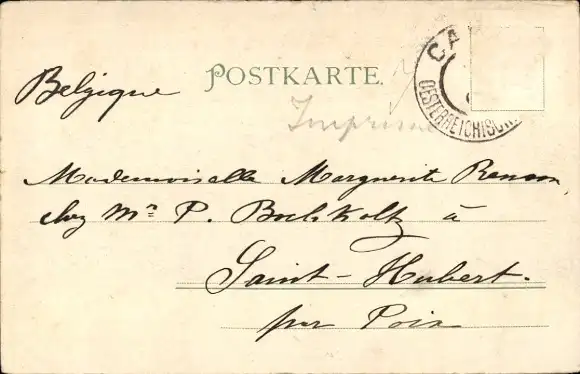 Belgique
POSTKARTE.
CA
OESTERREICHISCH
Imprimé
Mademoiselle Marguerite Renson,
chez Mr P. Bochkoltz à
Saint-Hubert.
par Poix